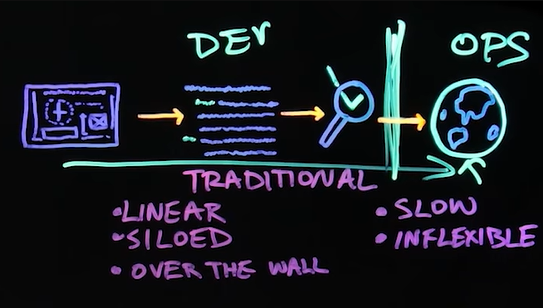 DEV
OPS
TRADITIONAL
• LINEAR
• SILOED
• OVER THE WALL
• SLOW
• INFLEXIBLE